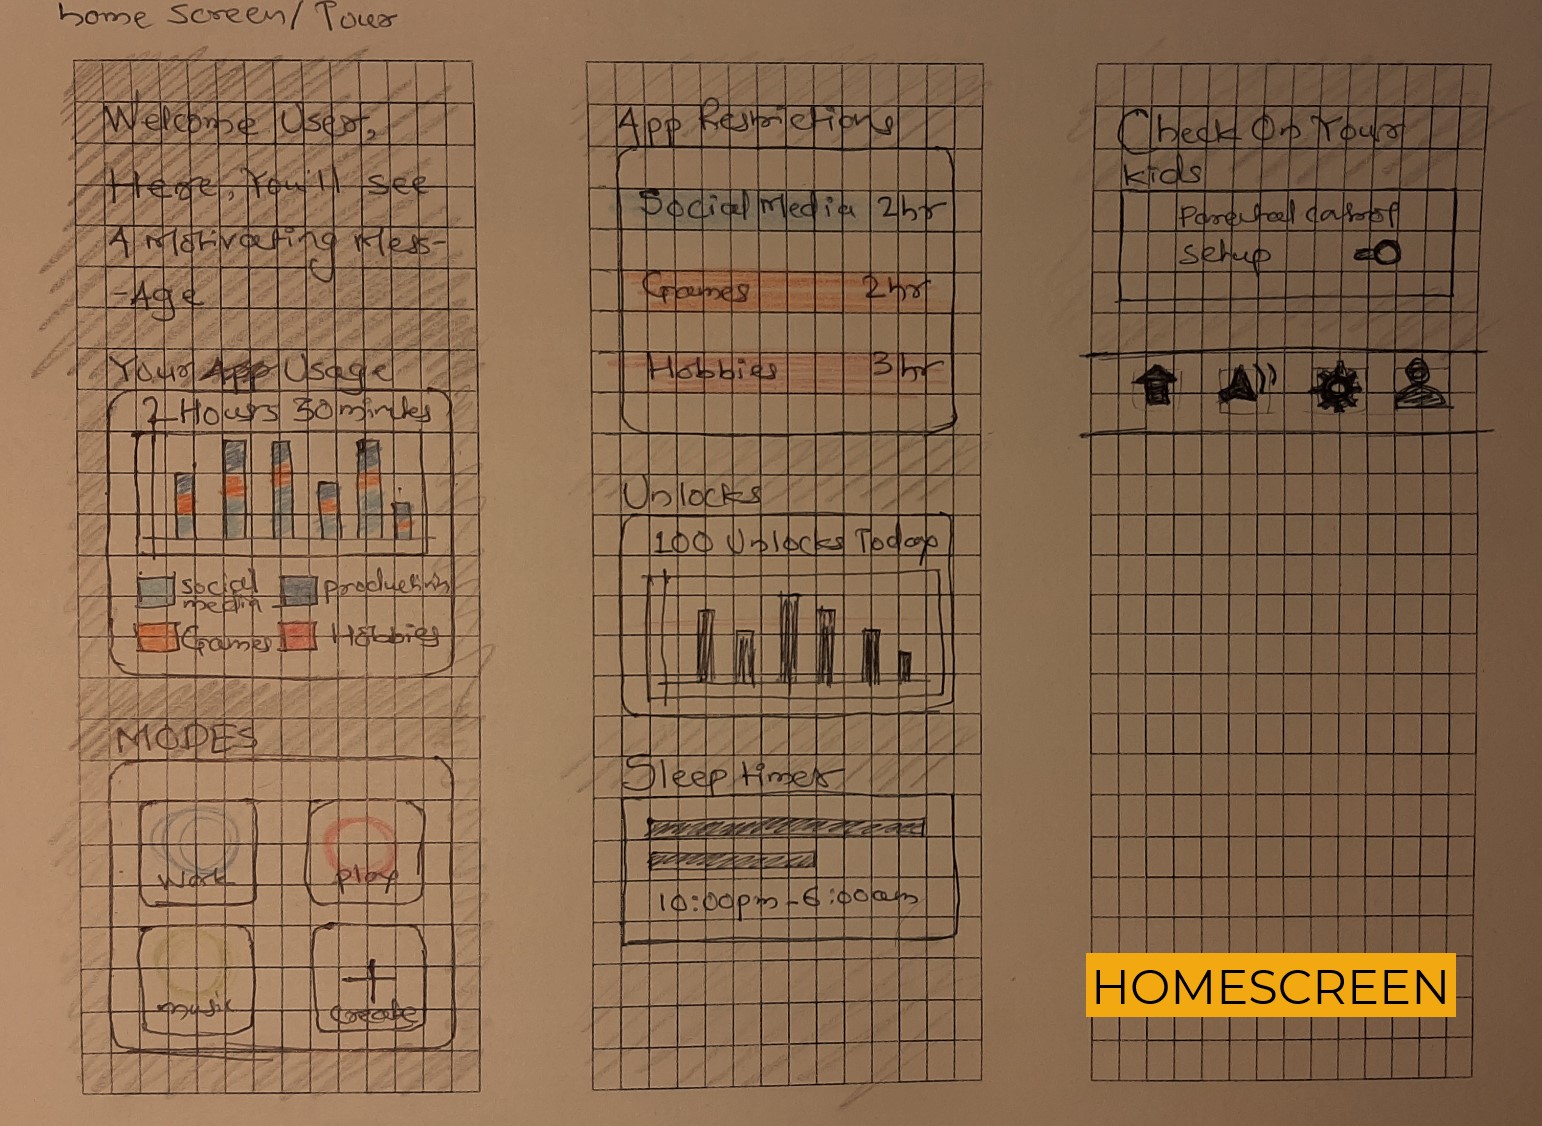 home screen/ Tour
Welcome User,
Here, You'll see
A Motivating Mess-
-Age
Your App Usage
2 Hours 30 minutes
social
media
productivity
Games
Hobbies
MODES
Work
play
music
create
App Restrictions
Social Media 2hr
Games 2hr
Hobbies 3hr
Unlocks
100 Unlocks Today
Sleep times
10:00pm-6:00am
Check On Your
kids
Parental control
setup
HOMESCREEN